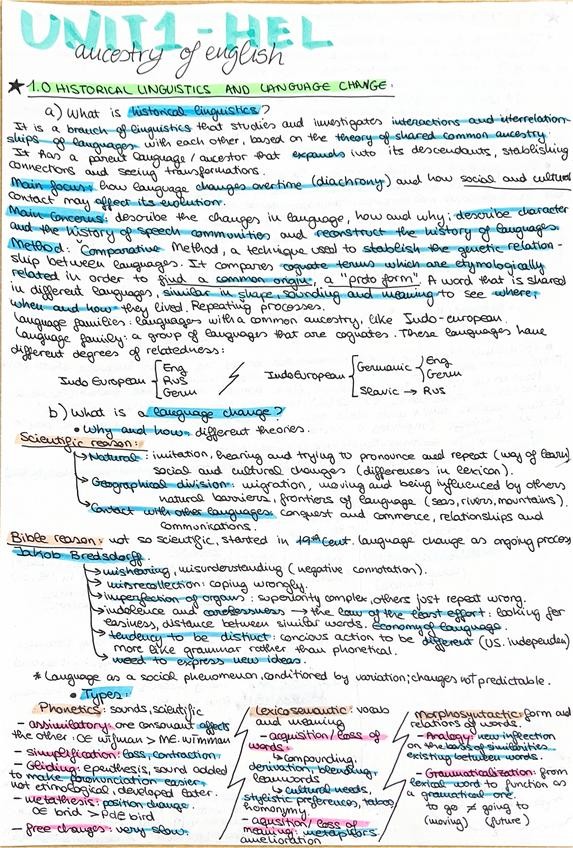 UNIT 1 - HEL
ancestry of english
★ 1.0 HISTORICAL LINGUISTICS AND LANGUAGE CHANGE:
a) What is historical linguistics?
It is a branch of linguistics that studies and investigates interactions and interrelation-
ships of languages with each other, based on the theory of shared common ancestry.
It has a parent language / ancestor that expands into its descendants, stablishing
connections and seeing transformations.
Main focus: how language changes overtime (diachrony) and how social and cultural
contact may affect its evolution.
Main concerns: describe the changes in language, how and why; describe character
and the history of speech communities and reconstruct the history of languages.
Method: Comparative Method, a technique used to stablish the genetic relation-
ship between languages. It compares cognate terms which are etymologically
related in order to find a common origin, a "proto form". A word that is shared
in different languages, similar in shape, sounding and meaning to see where,
when and how they lived. Repeating processes.
Language families: languages with a common ancestry, like Indo-european.
Language family: a group of languages that are cognates. These languages have
different degrees of relatedness:
Indo European { Eng Rus Germ / Indo European { Germanic { Eng Germ
Slavic → Rus
b) What is a language change?
• Why and how: different theories.
Scientific reason:
→ Natural: imitation, hearing and trying to pronounce and repeat (way of learn)
social and cultural changes (differences in lexicon).
→ Geographical division: migration, moving and being influenced by others
natural barriers, frontiers of language (seas, rivers, mountains).
→ Contact with other languages: conquest and commerce, relationships and
communications.
Bible reason: not so scientific, started in 19th Cent. language change as ongoing process
Jakob Bredsdorff.
→ mishearing, misunderstanding (negative connotation).
→ misrecollection: coping wrongly.
→ imperfection of organs: superiority complex, others just repeat wrong.
→ indolence and carelessness → the law of the least effort: looking for
easiness, distance between similar words. Economy of language.
→ tendency to be distinct: concious action to be different (US. independen)
more like grammar rather than phonetical.
→ need to express new ideas.
* Language as a social phenomenon, conditioned by variation; changes not predictable.
• Types:
Phonetics: sounds, scientific
- assimilatory: one consonant affects
the other: OE wifman > ME. wimman
- simplification: loss, contraction.
- Gliding: epenthesis, sound added
to make pronunciation easier,
not etimological, developed later.
- metathesis: position change.
OE brid > PdE bird
- free changes: very slow.
Lexicosemantic: vocab
and meaning
- acquisition / loss of
words:
↳ compounding,
derivation, blending,
loanwords
↳ cultural needs,
stylistic preferences, taboo,
homonymy.
- aquisition / loss of
meaning: metaphors
amelioration
Morphosyntactic: form and
relations of words.
- Analogy: new inflection
on the basis of similarities
existing between words.
- Grammaticalization: from
lexical word to function as
a grammatical one.
to go ≠ going to
(moving) (future)